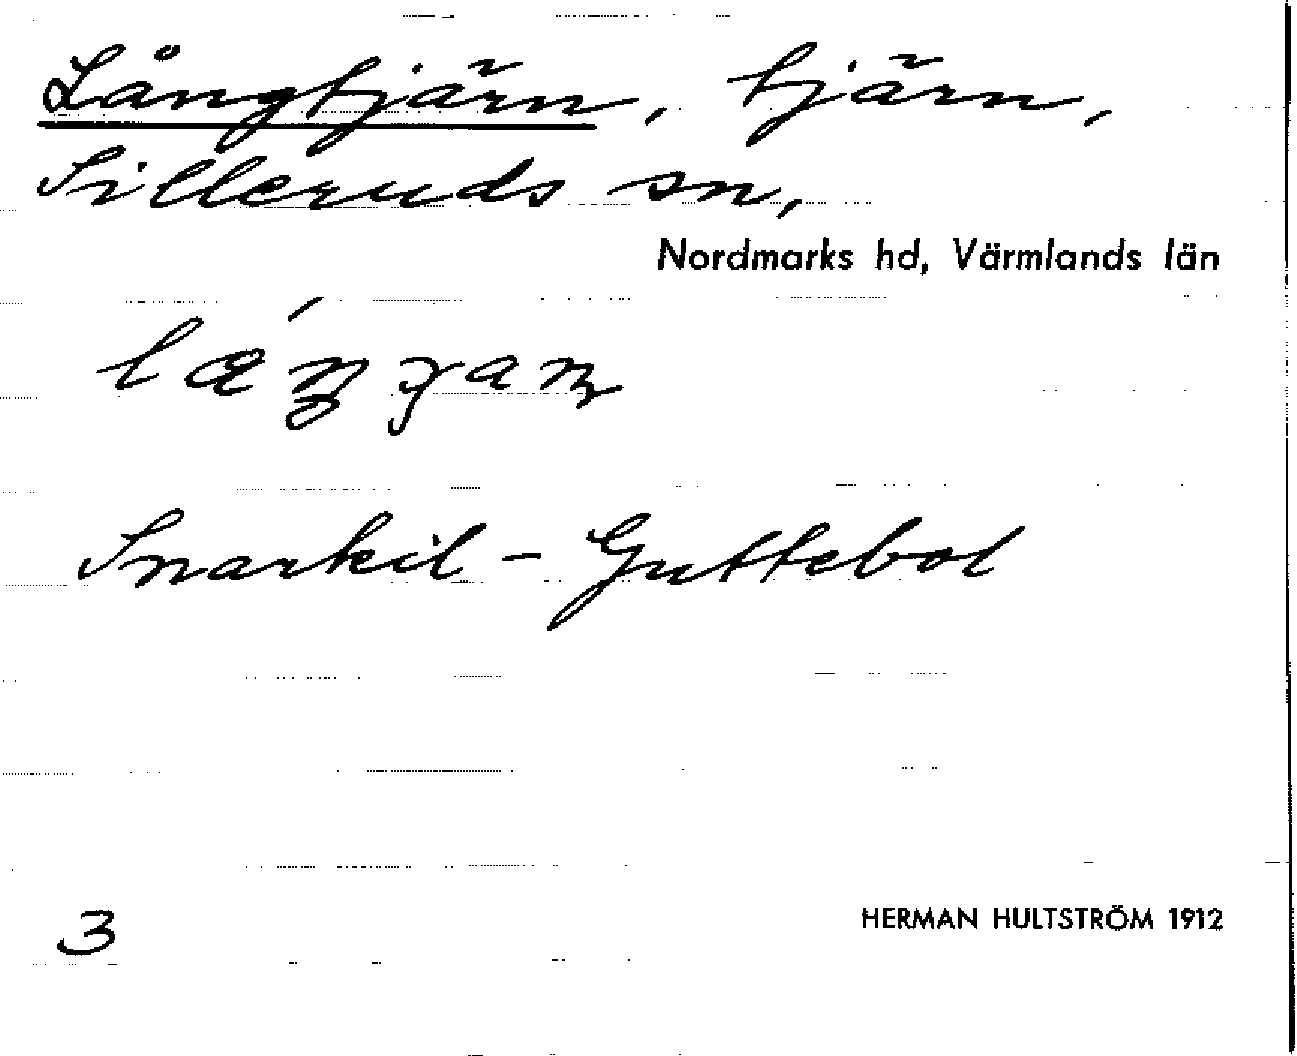 Långtjärn, tjärn,
Silleruds sn,
Nordmarks hd, Värmlands län
Snarkil - Guttebol
3
HERMAN HULTSTRÖM 1912